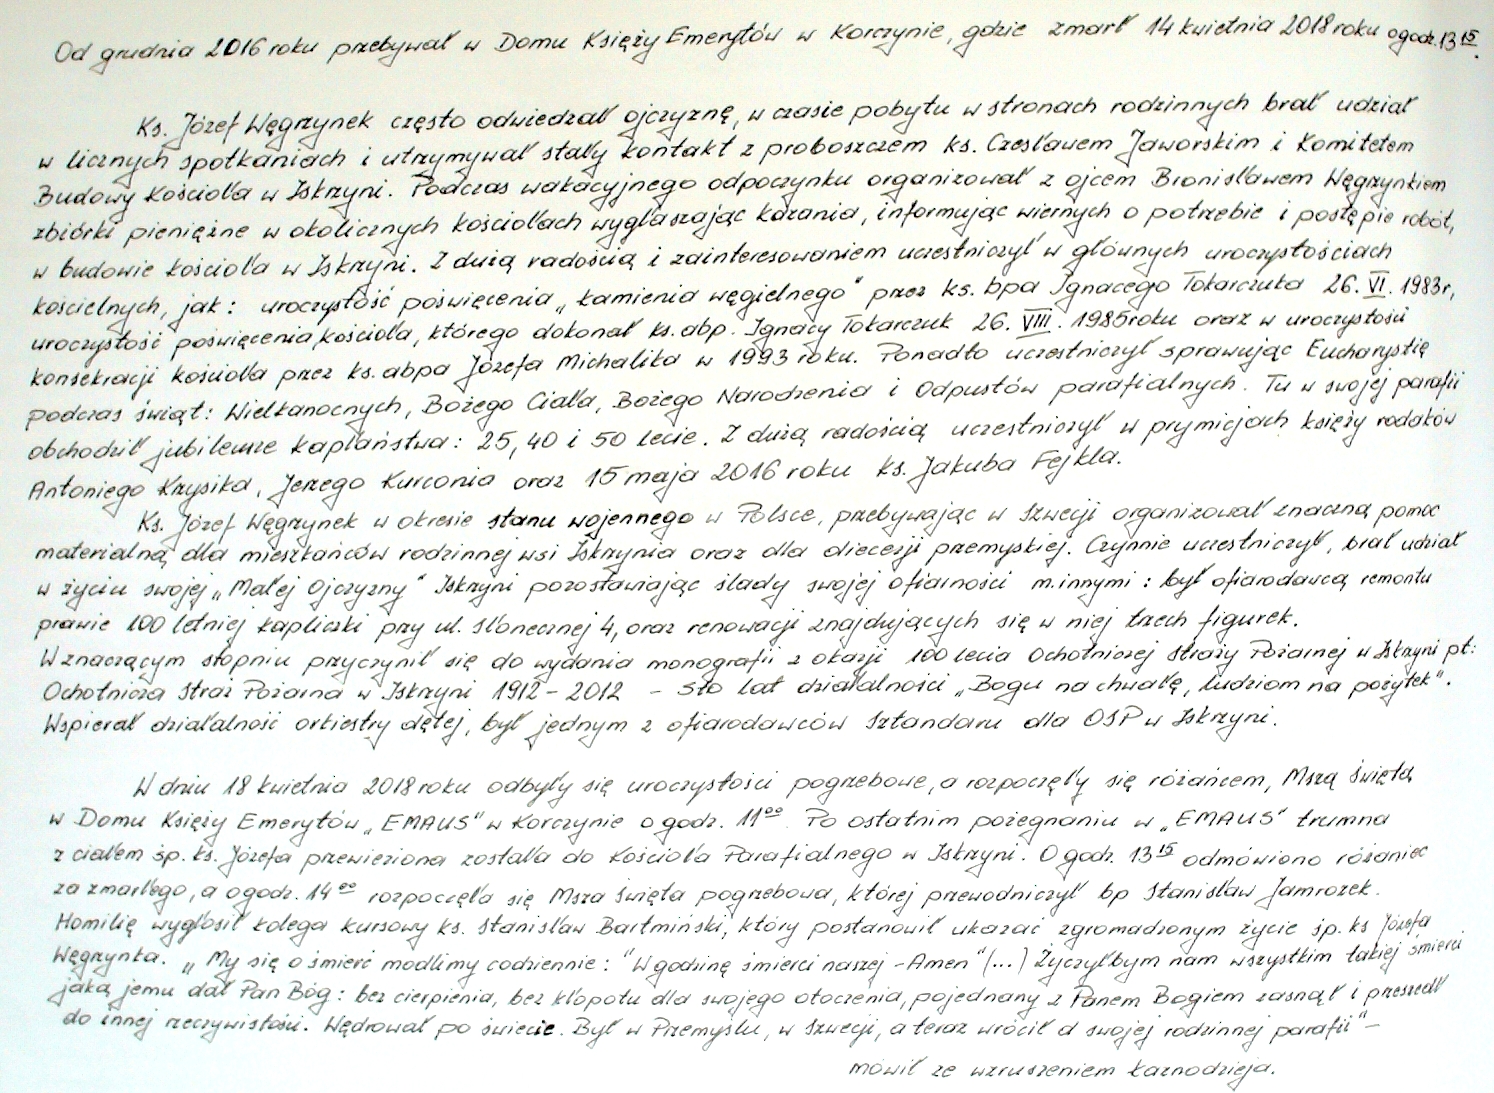 Od grudnia 2016 roku przebywał w Domu Księży Emerytów w Korczynie, gdzie zmarł 14 kwietnia 2018 roku o godz. 13 15.
Ks. Józef Węgrzynek często odwiedzał ojczyznę, w czasie pobytu w stronach rodzinnych brał udział
w licznych spotkaniach i utrzymywał stały kontakt z proboszczem ks. Czesławem Jaworskim i Komitetem
Budowy Kościoła w Iskrzyni. Podczas wakacyjnego odpoczynku organizował z ojcem Bronisławem Węgrzynkiem
zbiórki pieniężne w okolicznych kościołach wygłaszając kazania, informując wiernych o potrzebie i postępie robót,
w budowie kościoła w Iskrzyni. Z dużą radością i zainteresowaniem uczestniczył w głównych uroczystościach
kościelnych, jak: uroczystość poświęcenia „kamienia węgielnego" przez ks. bpa Ignacego Tokarczuka 26. VI. 1983r,
uroczystość poświęcenia kościoła, którego dokonał ks. abp. Ignacy Tokarczuk 26. VIII. 1985 roku oraz w uroczystości
konsekracji kościoła przez ks. abpa Józefa Michalika w 1993 roku. Ponadto uczestniczył sprawując Eucharystię
podczas świąt: Wielkanocnych, Bożego Ciała, Bożego Narodzenia i Odpustów parafialnych. Tu w swojej parafii
obchodził jubileusze kapłaństwa: 25, 40 i 50 lecie. Z dużą radością uczestniczył w prymicjach księży rodaków
Antoniego Krzysika, Jerzego Kurconia oraz 15 maja 2016 roku ks. Jakuba Fejkla.
Ks. Józef Węgrzynek w okresie stanu wojennego w Polsce, przebywając w Szwecji organizował znaczną pomoc
materialną dla mieszkańców rodzinnej wsi Iskrzynia oraz dla diecezji przemyskiej. Czynnie uczestniczył, brał udział
w życiu swojej „Małej Ojczyzny" Iskrzyni pozostawiając ślady swojej ofiarności m.innymi: był ofiarodawcą remontu
prawie 100 letniej kapliczki przy ul. Słonecznej 4, oraz renowacji znajdujących się w niej trzech figurek.
W znaczącym stopniu przyczynił się do wydania monografii z okazji 100 lecia Ochotniczej Straży Pożarnej w Iskrzyni pt:
Ochotnicza Straż Pożarna w Iskrzyni 1912 - 2012 - Sto lat działalności „Bogu na chwałę, ludziom na pożytek".
Wspierał działalność orkiestry dętej, był jednym z ofiarodawców Sztandaru dla OSP w Iskrzyni.
W dniu 18 kwietnia 2018 roku odbyły się uroczystości pogrzebowe, a rozpoczęły się różańcem, Mszą Świętą
w Domu Księży Emerytów „EMAUS" w Korczynie o godz. 11 00. Po ostatnim pożegnaniu w „EMAUS" trumna
z ciałem śp. ks. Józefa przewieziona została do Kościoła Parafialnego w Iskrzyni. O godz. 13 15 odmówiono różaniec
za zmarłego, a o godz. 14 00 rozpoczęła się Msza Święta pogrzebowa, której przewodniczył bp Stanisław Jamrozek.
Homilię wygłosił kolega kursowy ks. Stanisław Bartmiński, który postanowił ukazać zgromadzonym życie śp. ks Józefa
Węgrzynka. „My się o śmierć modlimy codziennie: "W godzinę śmierci naszej - Amen" (...) Życzyłbym nam wszystkim takiej śmierci
jaką jemu dał Pan Bóg: bez cierpienia, bez kłopotu dla swojego otoczenia, pojednany z Panem Bogiem zasnął i przeszedł
do innej rzeczywistości. Wędrował po świecie. Był w Przemyślu, w Szwecji, a teraz wrócił d swojej rodzinnej parafii" -
mówił ze wzruszeniem kaznodzieja.